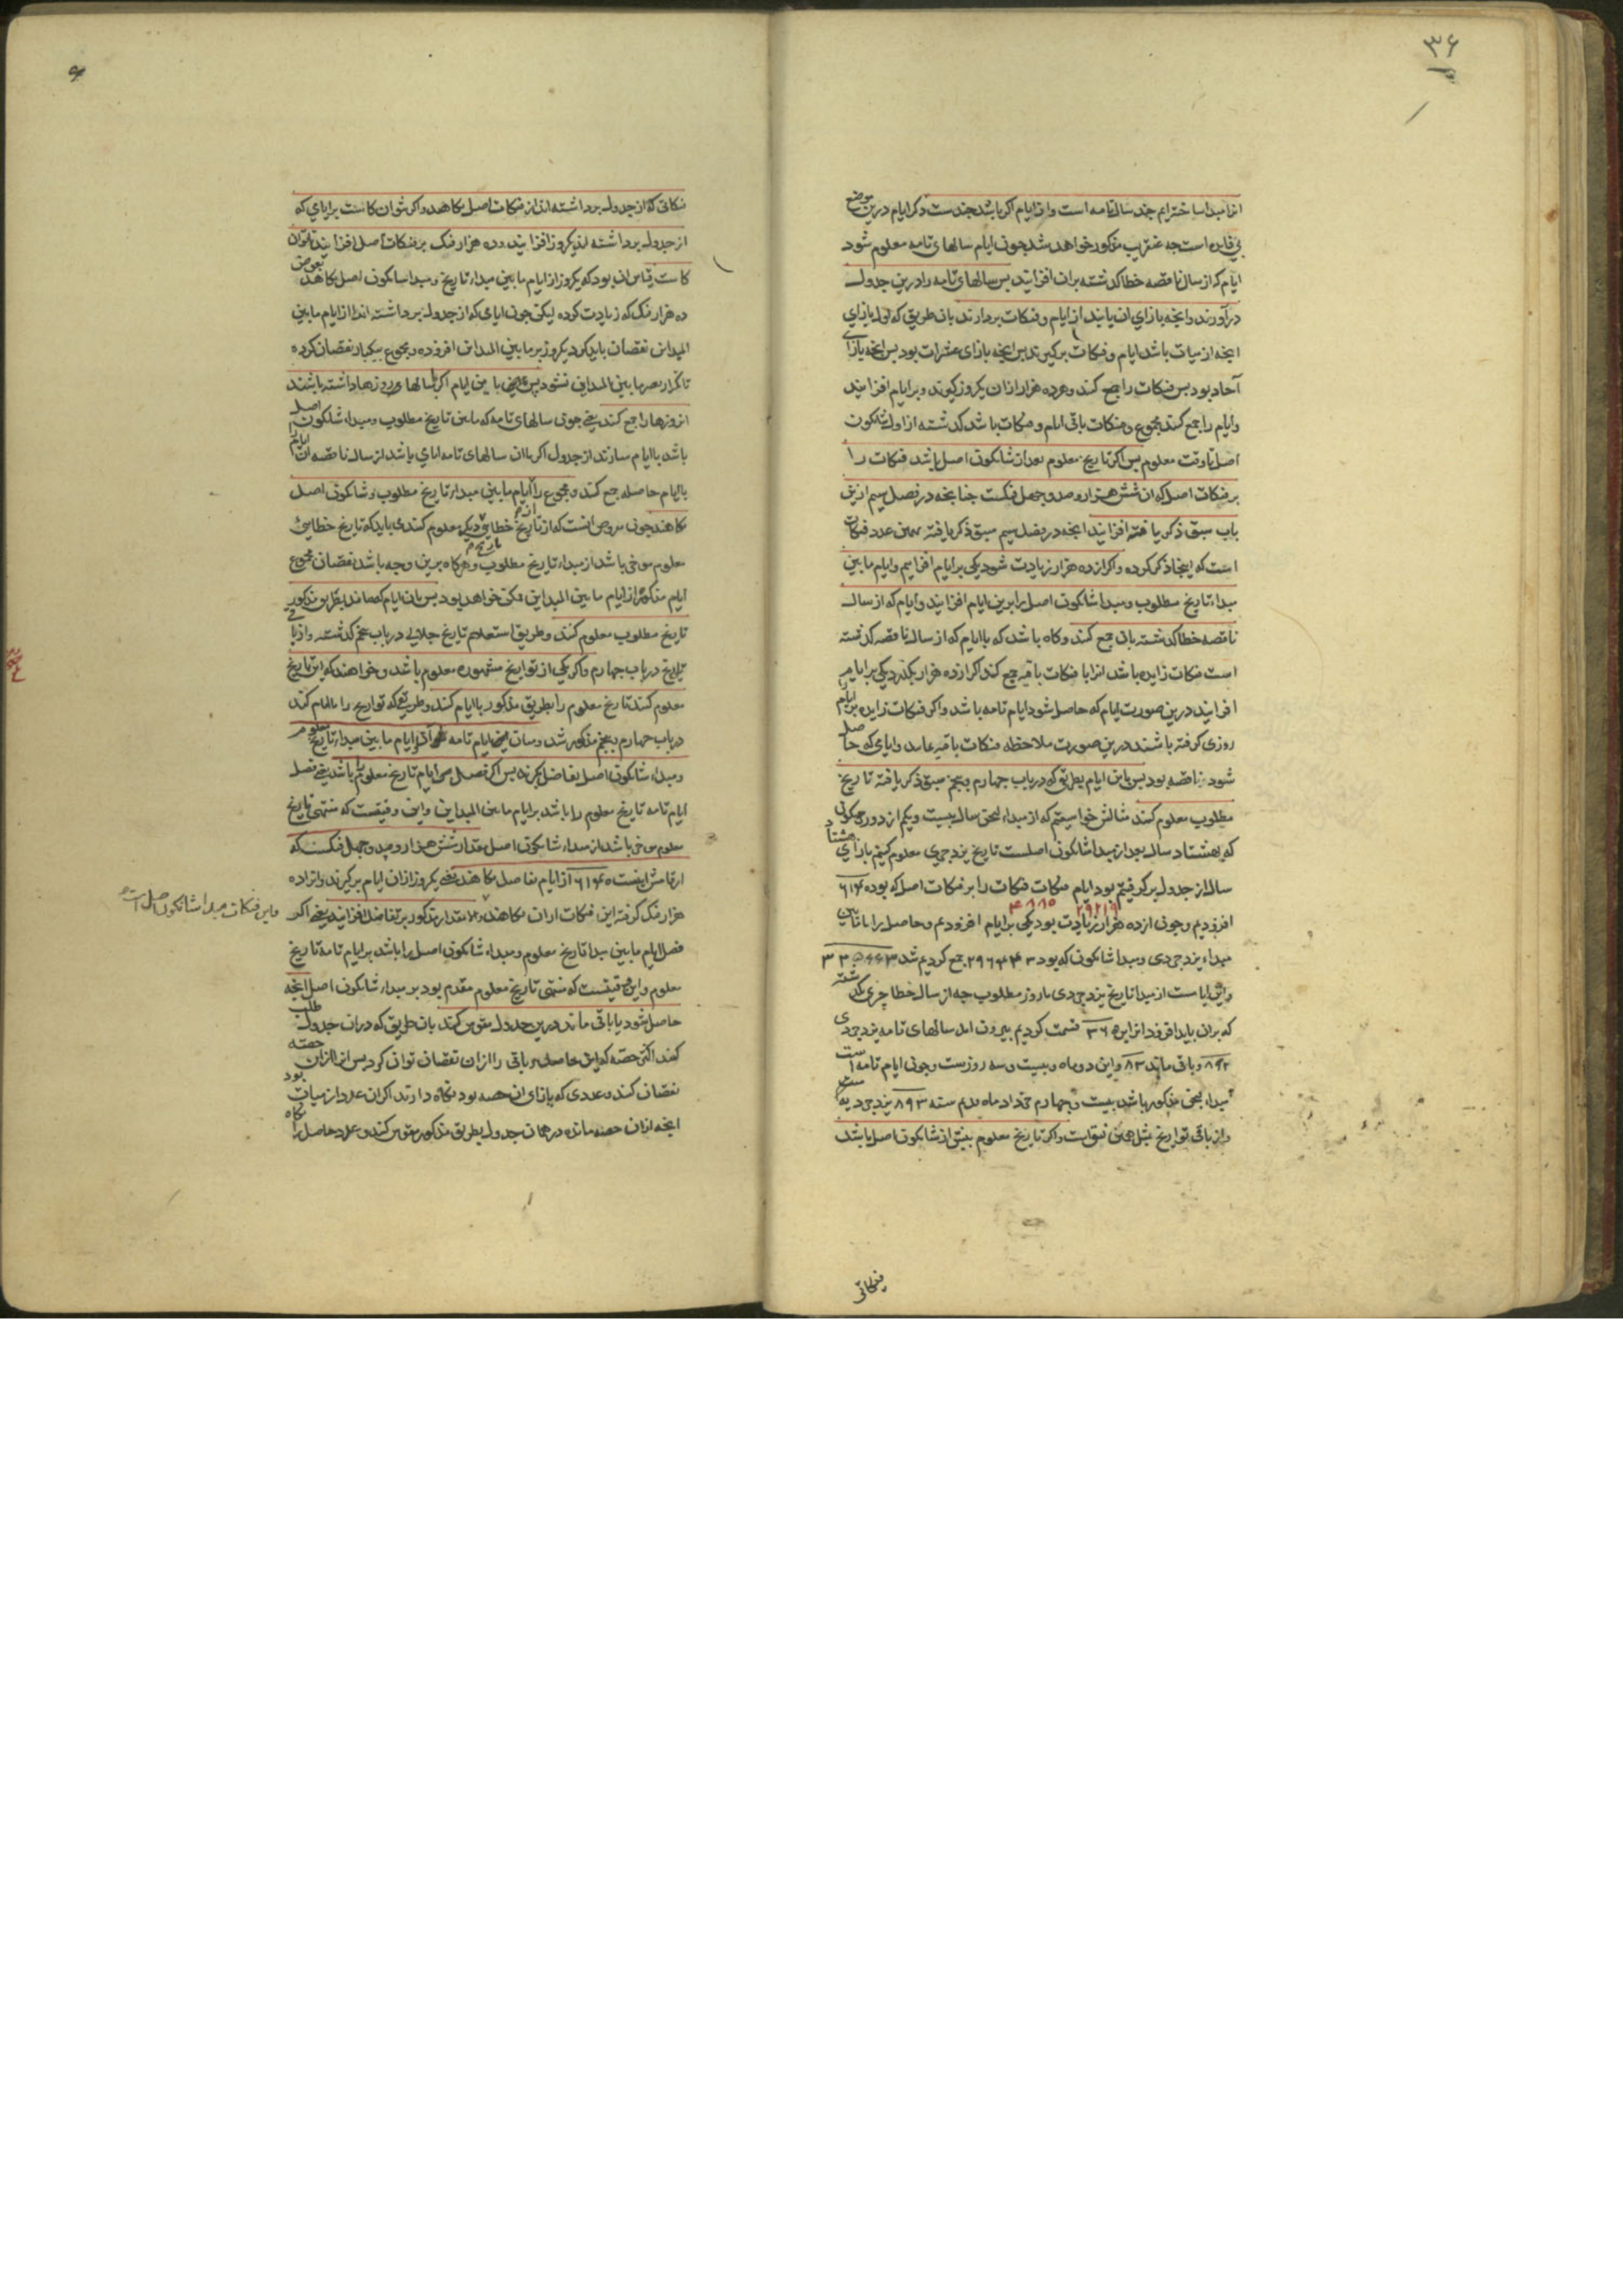 ۳۶
از مبدا ساخته‌ایم چند سال تامه است و از ایام اکر باشد چندست و ذکر ایام درین موضع
بی فایده است چه عنقریب مذکور خواهد شد چون ایام سالهای تامه معلوم شود
ایام که از سال ناقصه خطا کذشته بران افزایند بس سالهای تامه را درین جدول
درآورند و انجه بازای ان یابند از ایام و فنکات بردارند بان طریق که اول بازای
انجه از میات باشد ایام و فنکات برکیرند بس انجه بازای عشرات بود بس انجه بازای
آحاد بود بس فنکات را جمع کنند و هر ده هزار ازان یکروز کیرند و بر ایام افزایند
و ایام را جمع کنند مجموع و فنکات باقی ایام و فنکات باشد کذشته از اول شانکون
اصل تا وقت معلوم بس اکر تاریخ معلوم بعد از شانکون اصل باشد فنکات را
بر فنکات اصل که ان شش هزار و صد و چهل فنکست چنانجه در فصل سیم ازین
باب سبق ذکر یافته افزایند انجه در فصل سیم سبق ذکر یافته همین عدد فنکات
است که اینجا ذکر کرده و اکر از ده هزار زیادت شود یکی بر ایام افزاییم و ایام مابین
مبداء تاریخ مطلوب و مبدا شانکون اصل را برین ایام افزایند و ایام که از سال
ناقصه خطا کذشته بان جمع کنند و کاه باشد که با ایام که از سال ناقصه کذشته
است فنکات زایده باشد انرا با فنکات باقیه جمع کند و اکر از ده هزار بکذرد یکی بر ایام
افزایند درین صورت ایام که حاصل شود ایام تامه باشد و اکر فنکات زایده را بر ایام
روزی کرفته باشند درین صورت ملاحظه فنکات باقیه نماید و ایامی که حاصل
شود ناقصه بود بس باین ایام بطریق که در باب چهارم و پنجم سبق ذکر یافته تاریخ
مطلوب معلوم کنند مثالش خواستیم که از مبداء لنجق سال بیست و یکم از دور جونکون
که هشتاد سال بعد از مبدا شانکون اصلست تاریخ یزدجردی معلوم کنیم بازای هشتاد
سال از جدول برکرفتیم بود ایام فنکات فنکات را بر فنکات اصل که بوده ۶۱۴۰
۲۹۲۱۹ ۴۸۸۵
افزودیم و چون از ده هزار زیادت بود یکی بر ایام افزودیم و حاصل را با مابین
مبداء یزدجردی و مبدا شانکون که بود ۲۹۶۴۴۳ جمع کردیم شد ۳۲۵۶۶۳
و این ایامست از مبدا تاریخ یزدجردی تا روز مطلوب چه از سال خطا چیزی نکذشته
که بران باید افزود انرا بر ۳۶۵ قسمت کردیم بیرون امد سالهای تامه یزدجردی
۸۹۲ و باقی ماند ۸۳ و این دو ماه و بیست و سه روزست و چون ایام تامه است
مبداء لنجق مذکور باشد بیست و چهارم خرداد ماه قدیم سنه ۸۹۳ یزدجردیه
و از باقی تواریخ بمثل همین نیق است و اکر تاریخ معلوم بیش از شانکون اصل باشد
فنکاتی
فنکاتی که از جدول برداشته‌اند از فنکات اصل بکاهند و اکر نتوان کاست بر ایامی که
از جدول برداشته‌اند یکروز افزایند و ده هزار فنک بر فنکات اصل افزایند تا توان
کاست قیاس ان بود که یکروز از ایام مابین مبداء تاریخ و مبدا شانکون اصل بکاهند بعوض
ده هزار فنک که زیادت کرده لیکن چون ایامی که از جدول برداشته‌اند از ایام مابین
المبداین نقصان باید کرد یکروز بر مابین المبداین افزوده و مجموع بیکبار نقصان کرده
تا تکرار بر مابین المبداین نشود پس باین ایام اکر با سالها روزها داشته باشند
ان روزها را جمع کنند یعنی چون سالهای تامه که مابین تاریخ مطلوب و مبداء شانکون اصل
باشد با ایام سازند از جدول اکر با ان سالهای تامه ایامی باشد از سال ناقصه ان ایام را
با ایام حاصله جمع کنند و مجموع را از ایام مابین مبداء تاریخ مطلوب و شانکون اصل
بکاهند چون مفروض انست که از تاریخ خطایی تاریخ دیکر معلوم کنند می باید که تاریخ خطایی
معلوم موخر باشد از مبداء تاریخ مطلوب و هرکاه برین وجه باشد نقصان مجموع
ایام مذکور از ایام مابین المبداین ممکن خواهد بود بس بان ایام که ماند بطریق مذکور
تاریخ مطلوب معلوم کنند و طریق استعلام تاریخ جلالی در باب پنجم کذشته و از باقی
تواریخ در باب چهارم و اکر یکی از تواریخ مشهوره معلوم باشد و خواهند که این تاریخ
معلوم کنند تاریخ معلوم را بطریق مذکور با ایام کنند و طریق که تواریخ را با ایام کنند
در باب چهارم و پنجم مذکور شد و میان این ایام تامه و ایام مابین مبداء تاریخ معلوم
و مبداء شانکون اصل تفاضل بکیرند بس اکر فضل مر ایام تاریخ معلوم را باشد یعنی فضل
ایام تامه تاریخ معلوم را باشد بر ایام مابین المبداین و این وقتیست که منتهی تاریخ
معلوم موخر باشد از مبداء شانکون اصل مقدار شش هزار و صد و چهل فنکست که
ارقامش اینست ۶۱۴۰ از ایام تفاضل بکاهند یعنی یکروز ازان ایام برکیرند و انرا ده
هزار فنک کرفته این فنکات ازان بکاهند و الا مقدار مذکور بر تفاضل افزایند یعنی اکر
و این فنکات مبدا شانکون اصل است
فضل ایام مابین مبدا تاریخ معلوم و مبداء شانکون اصل را باشد بر ایام تامه تاریخ
معلوم و این وقتیست که منتهی تاریخ معلوم مقدم بود بر مبداء شانکون اصل انجه
حاصل شود یا باقی ماند درین جدول مقوس کنند بان طریق که دران جدول طلب
کنند اکثر حصه که این حاصل یا باقی را ازان نقصان توانی کرد بس انرا ازان حصه
نقصان کنند و عددی که بازای ان حصه بود نکاه دارند اکر ان عدد از میات بود
انجه ازان حصه مانده در همان جدول بطریق مذکور مقوس کنند و عدد حاصل را نکاه